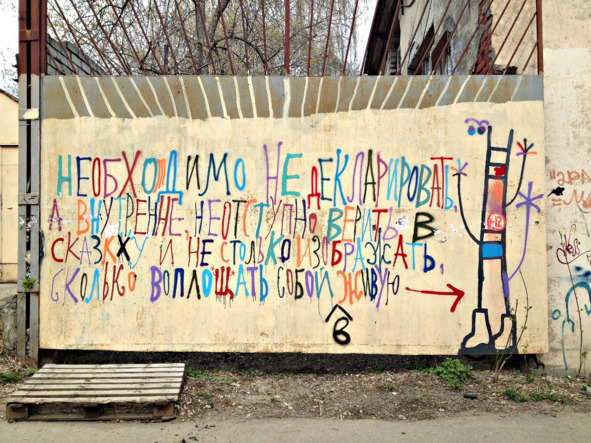 НЕОБХОДИМО НЕ ДЕКЛАРИРОВАТЬ,
А ВНУТРЕННЕ, НЕОТСТУПНО ВЕРИТЬ В
СКАЗКУ И НЕ СТОЛЬКО ИЗОБРАЖАТЬ,
СКОЛЬКО ВОПЛОЩАТЬ СОБОЙ ЖИВУЮ
В